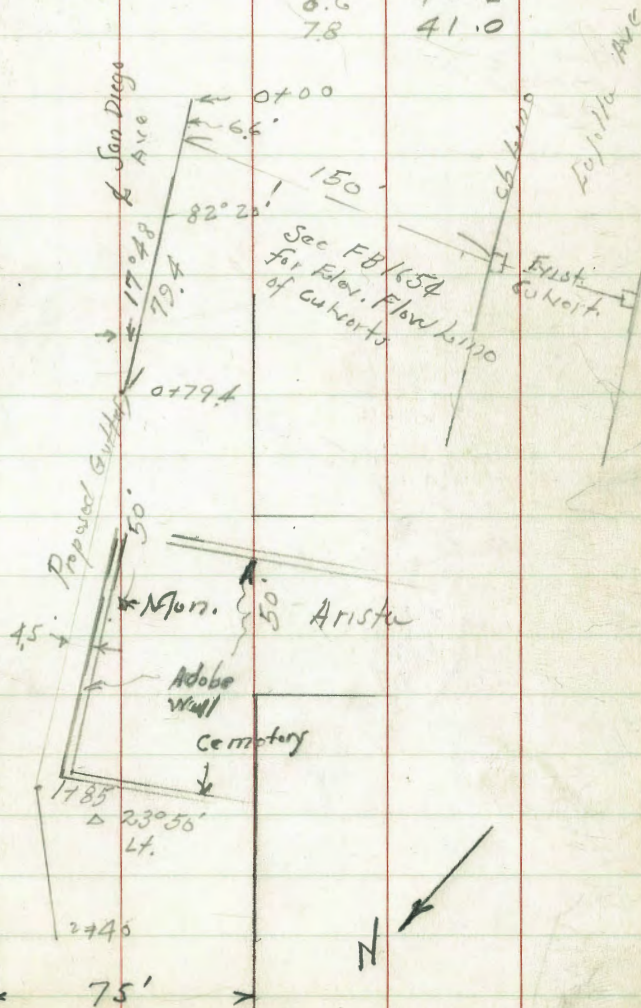 7.8 41.0
0+00
6.6'
℄ San Diego
Ave
150'
82°20'
17°48
79.4
See FB 1654
for Elev. Flow Line
of Culverts
Cb Line
Exist.
Culvert.
Ave
0+79.4
Proposed Gutter
50'
Mon.
50'
Arista
4.5
Adobe
Wall
Cemetery
1+85
△ 23°50'
Lt.
2+40
N
75'